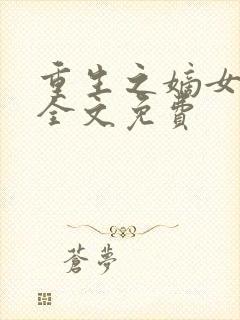 重生之嫡女
全文免費
蒼夢